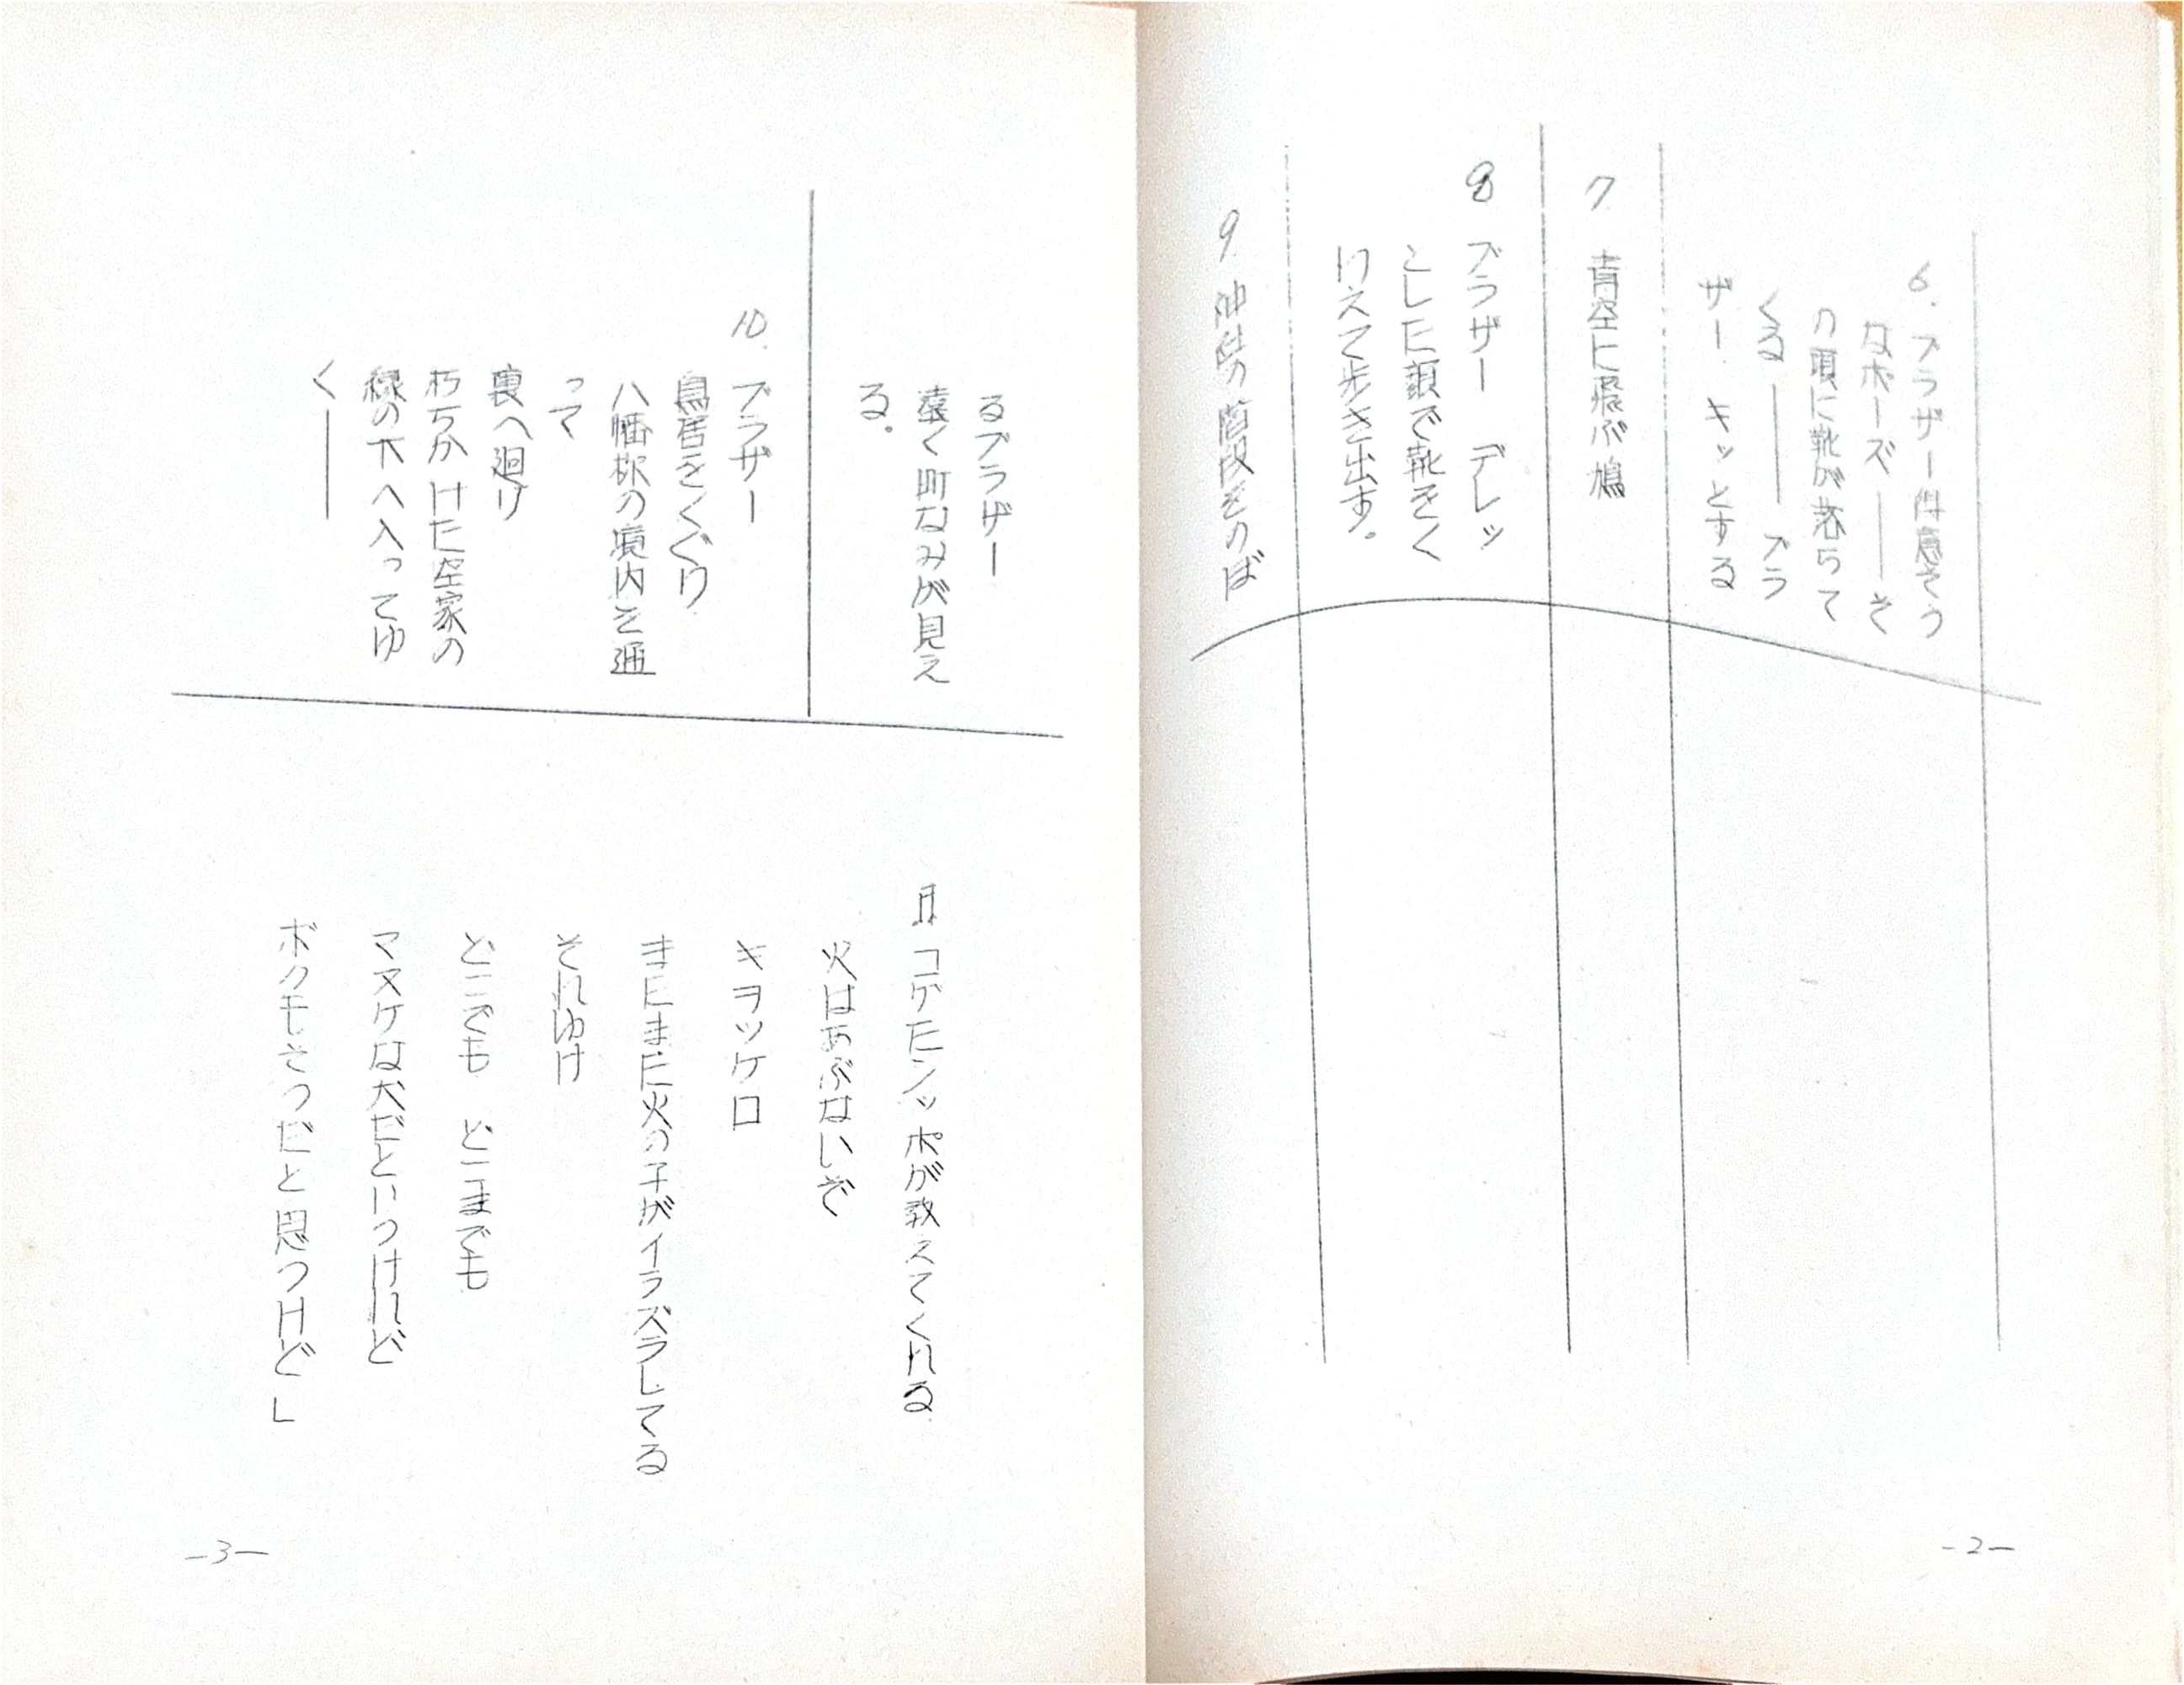 6. ブラザー得意そう
なポーズ――そ
の頭に靴が落ちて
くる―― ブラ
ザー キッとする
7 青空に飛ぶ鳩
8 ブラザー デレッ
とした顔で靴をく
わえて歩き出す。
9. 神社の階段をのぼ
-2-
るブラザー
遠く町なみが見え
る。
10. ブラザー
鳥居をくぐり
八幡様の境内を通
って
裏へ廻り
朽ちかけた空家の
縁の下へ入ってゆ
く――
コゲたシッポが教えてくれる
火はあぶないぞ
キヲツケロ
まだまだ火の子がイタズラしてる
それゆけ
どこでも どこまでも
マヌケな犬だというけれど
ボクもそうだと思うけど」
-3-